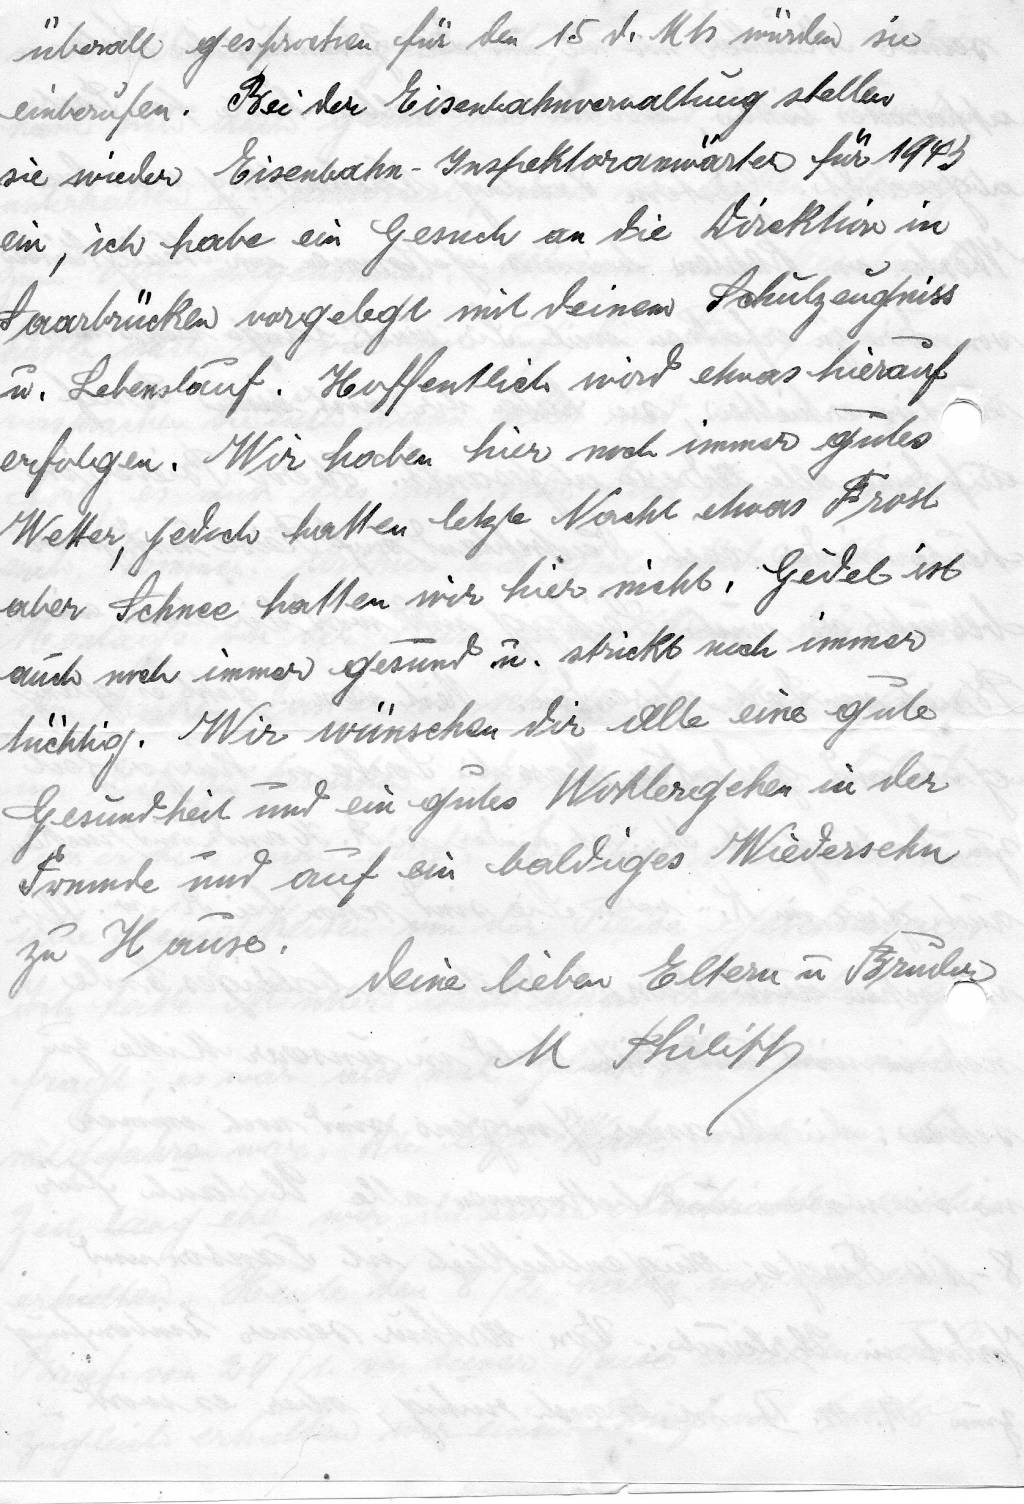 überall gesprochen für den 15 d. Mts würden sie
einberufen. Bei der Eisenbahnverwaltung stellen
sie wieder Eisenbahn-Inspektoranwärter für 1943
ein, ich habe ein Gesuch an die Direktion in
Saarbrücken vorgelegt mit deinem Schulzeugniss
u. Lebenslauf. Hoffentlich wird etwas hierauf
erfolgen. Wir haben hier noch immer gutes
Wetter, jedoch hatten letzte Nacht etwas Frost
aber Schnee hatten wir hier nicht. Gedel ist
auch noch immer gesund u. strickt noch immer
tüchtig. Wir wünschen dir Alle eine gute
Gesundheit und ein gutes Wohlergehen in der
Fremde und auf ein baldiges Wiedersehn
zu Hause.
deine lieben Eltern u Bruder
M Philipp